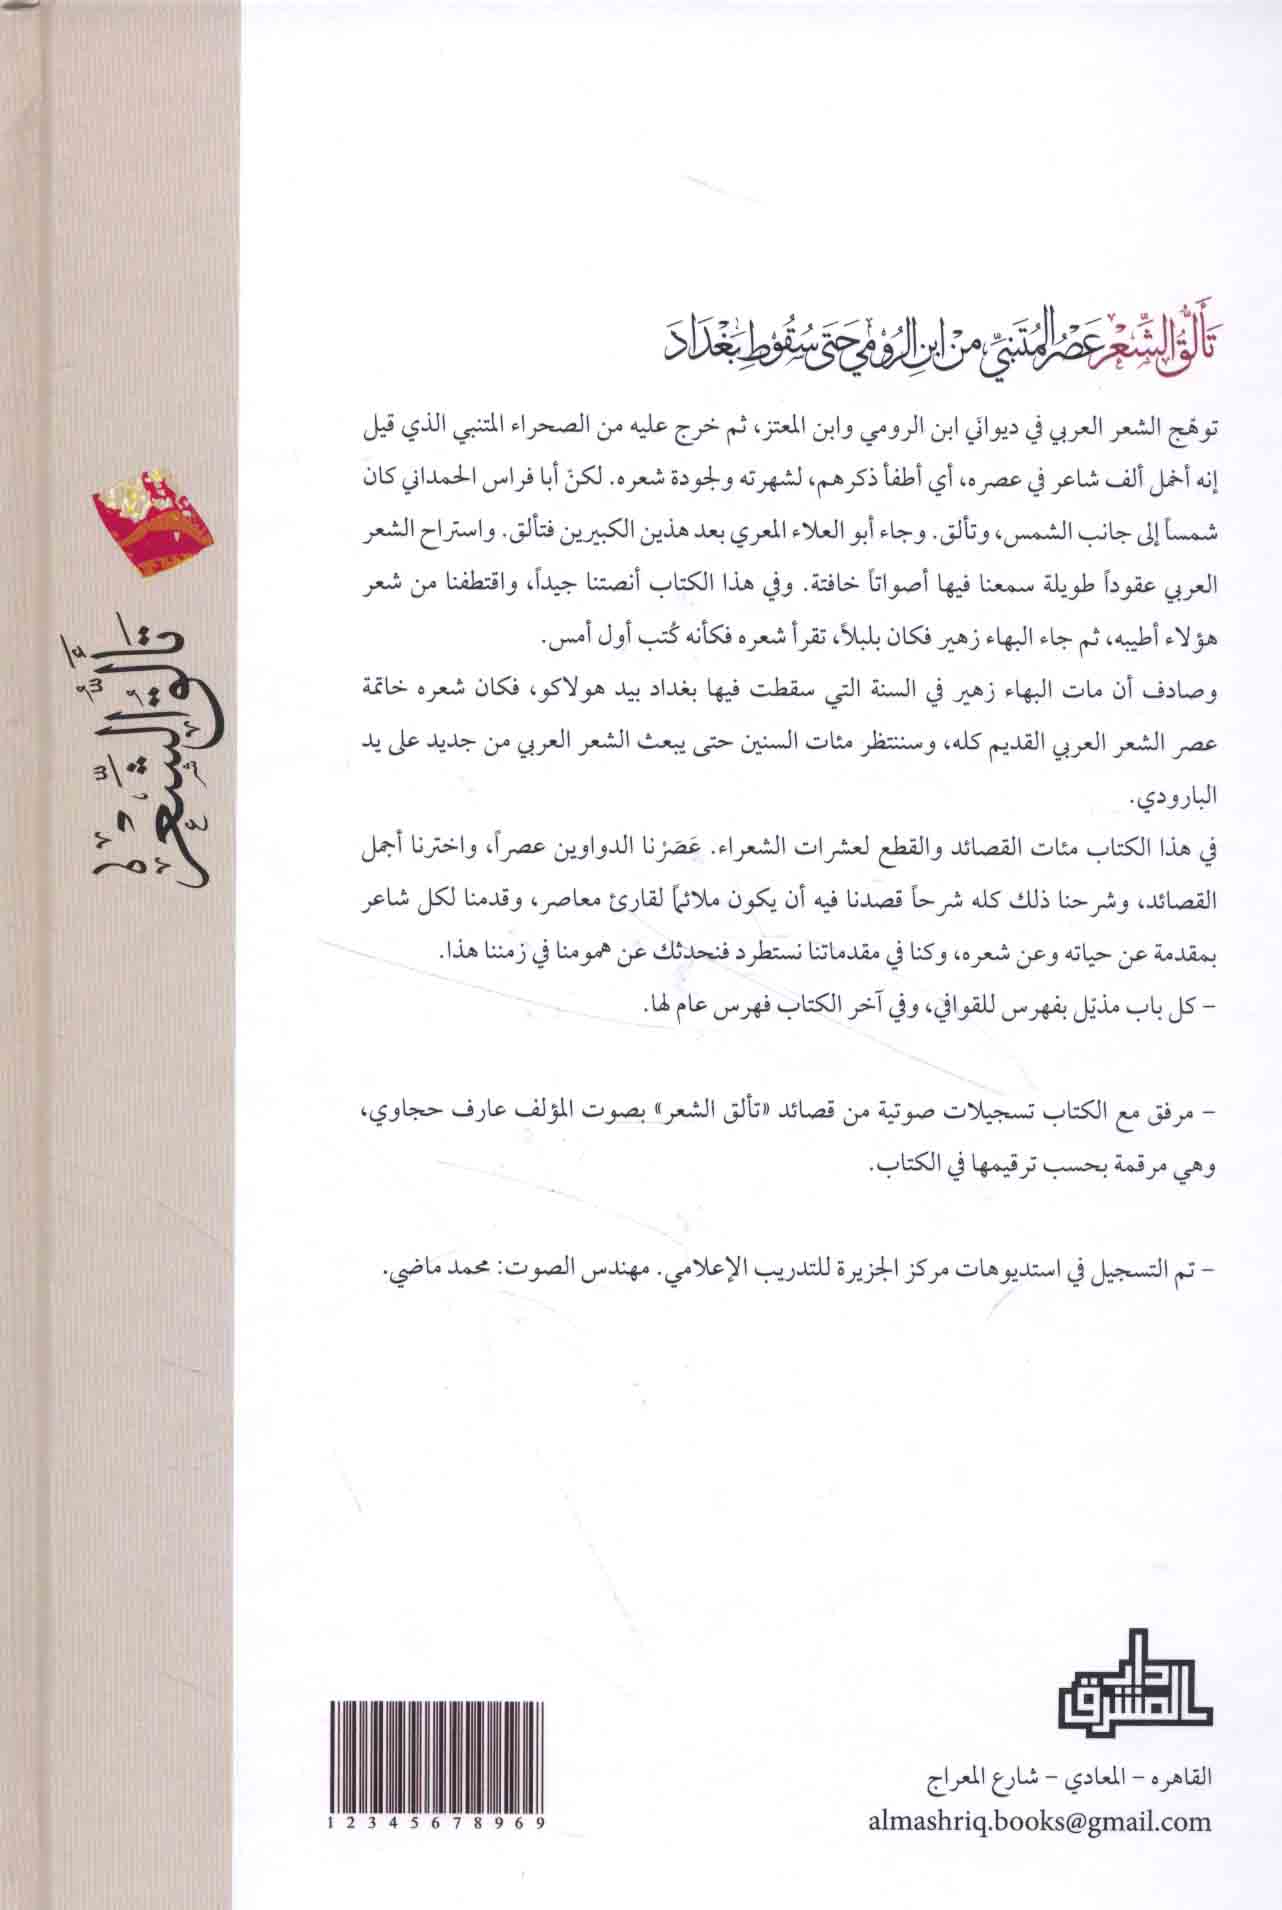 تَأَلُّقُ الشِّعْرِ عَصْرُ المُتَنَبِّي، مِنْ ابنِ الرُومِي حَتَى سُقُوطِ بَغْدَادَ
توهّج الشعر العربي في ديوانَي ابن الرومي وابن المعتز، ثم خرج عليه من الصحراء المتنبي الذي قيل
إنه أخمل ألف شاعر في عصره، أي أطفأ ذكرهم، لشهرته ولجودة شعره. لكنّ أبا فراس الحمداني كان
شمساً إلى جانب الشمس، وتألق. وجاء أبو العلاء المعري بعد هذين الكبيرين فتألق. واستراح الشعر
العربي عقوداً طويلة سمعنا فيها أصواتاً خافتة. وفي هذا الكتاب أنصتنا جيداً، واقتطفنا من شعر
هؤلاء أطيبه، ثم جاء البهاء زهير فكان بلبلاً، تقرأ شعره فكأنه كُتب أول أمس.
وصادف أن مات البهاء زهير في السنة التي سقطت فيها بغداد بيد هولاكو، فكان شعره خاتمة
عصر الشعر العربي القديم كله، وسننتظر مئات السنين حتى يبعث الشعر العربي من جديد على يد
البارودي.
في هذا الكتاب مئات القصائد والقطع لعشرات الشعراء. عَصَرْنا الدواوين عصراً، واخترنا أجمل
القصائد، وشرحنا ذلك كله شرحاً قصدنا فيه أن يكون ملائماً لقارئ معاصر، وقدمنا لكل شاعر
بمقدمة عن حياته وعن شعره، وكنا في مقدماتنا نستطرد فنحدثك عن همومنا في زمننا هذا.
- كل باب مذيّل بفهرس للقوافي، وفي آخر الكتاب فهرس عام لها.
- مرفق مع الكتاب تسجيلات صوتية من قصائد «تألق الشعر» بصوت المؤلف عارف حجاوي،
وهي مرقمة بحسب ترقيمها في الكتاب.
- تم التسجيل في استديوهات مركز الجزيرة للتدريب الإعلامي. مهندس الصوت: محمد ماضي.
تَأَلُّقُ الشِّعْر
دار المشرق
القاهره - المعادي - شارع المعراج
almashriq.books@gmail.com
1 2 3 4 5 6 7 8 9 6 9